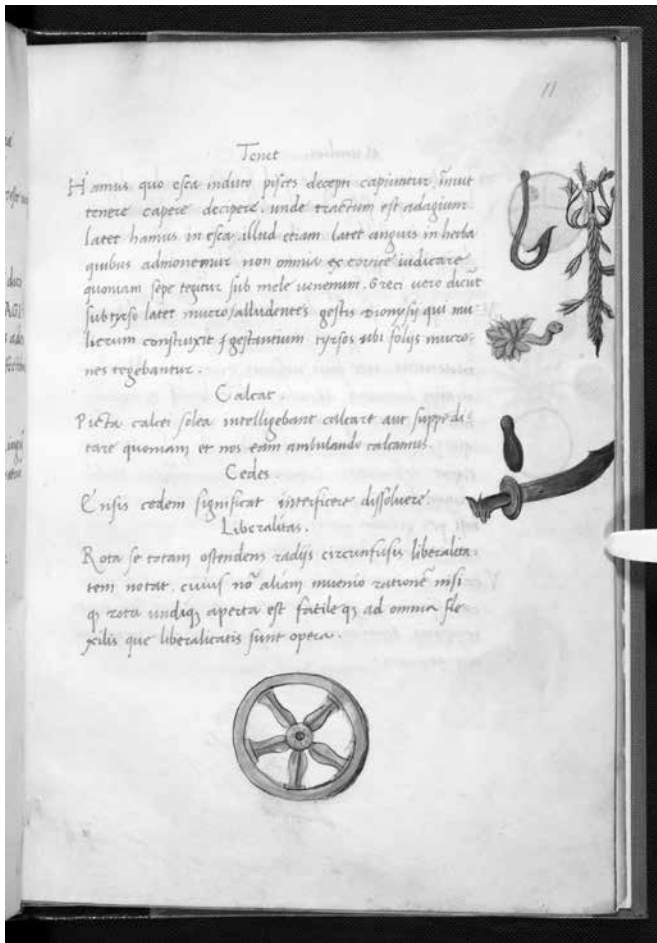 11
Tenet
Hamus quo esca induto pisces decepti capiuntur, innuit
tenere capere decipere. unde tractum est adagium
latet hamus in esca. illud etiam latet anguis in herba
quibus admonemur non omnia ex cortice iudicare
quoniam sepe tegitur sub mele uenenum. Greci uero dicūt
sub tyrso latet mucro/alludentes gestis Dionysij qui mu
lierum construxit gestantium tyrsos ubi folijs mucro-
nes tegebantur.
Calcat
Picta calcei solea intelligebant calcare aut suppedi-
tare quoniam et nos eam ambulando calcamus.
Cedes
Ensis cedem significat interficere dissoluere
Liberalitas.
Rota se totam ostendens radijs circunfusis liberalita-
tem notat. cuius nō aliam inuenio rationē nisi
qꝫ rota undiqꝫ aperta est facileqꝫ ad omnia fle-
xilis que liberalitatis sunt opera.